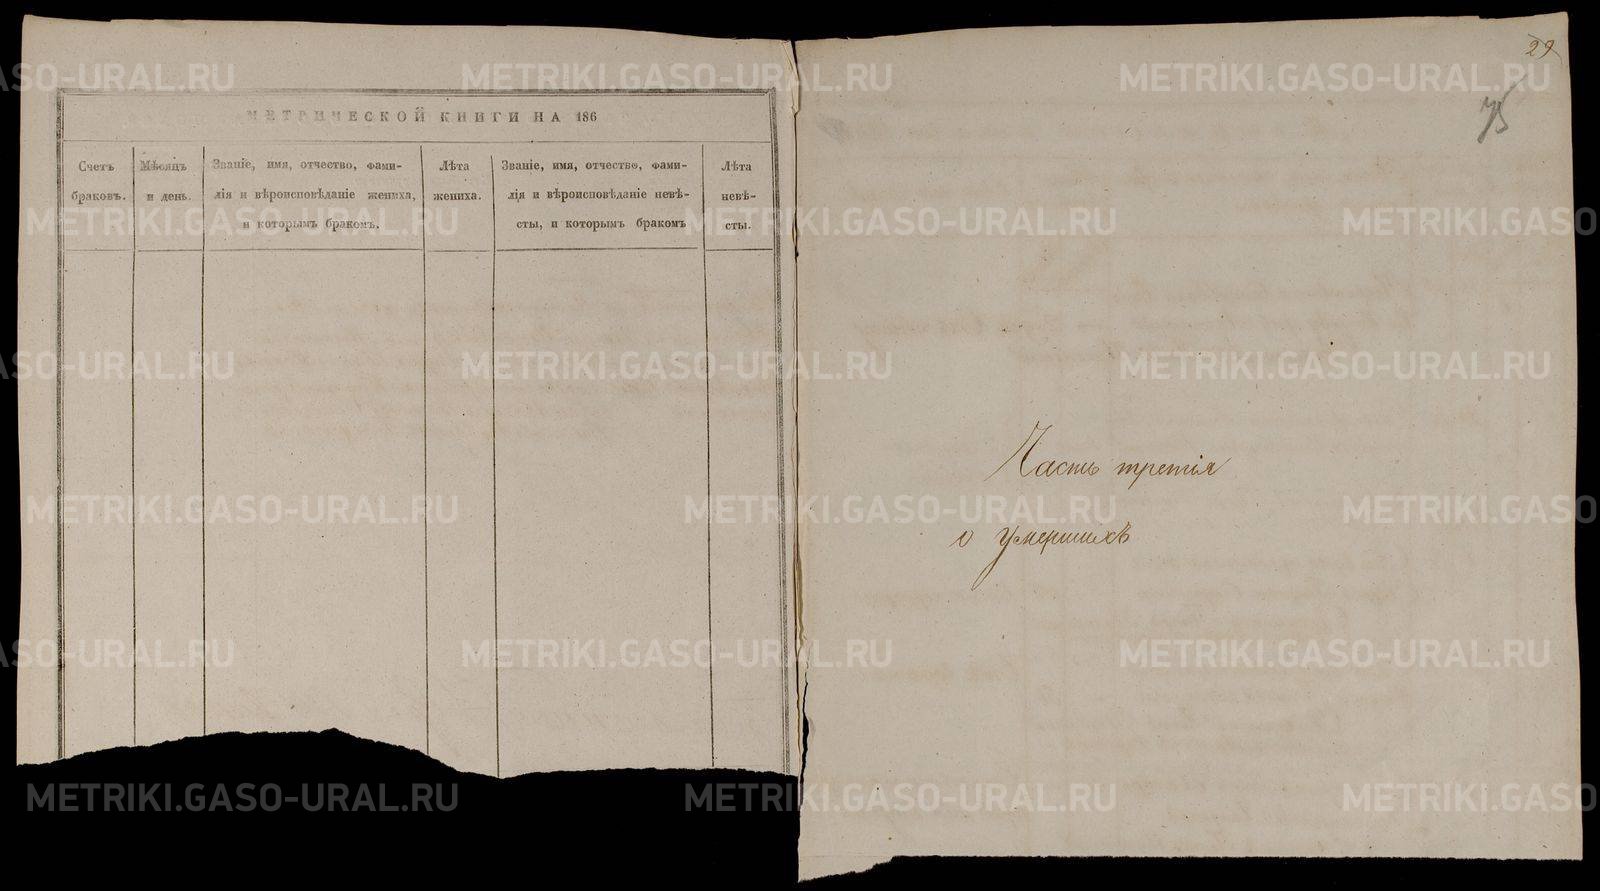 МЕТРИЧЕСКОЙ КНИГИ НА 186
Счетъ
браковъ.
Мѣсяцъ
и день.
Званіе, имя, отчество, фами-
лія и вѣроисповѣданіе жениха,
и которымъ бракомъ.
Лѣта
жениха.
Званіе, имя, отчество, фами-
лія и вѣроисповѣданіе невѣ-
сты, и которымъ бракомъ
Лѣта
невѣ-
сты.
29
75
Часть третія
о умершихъ
METRIKI.GASO-URAL.RU